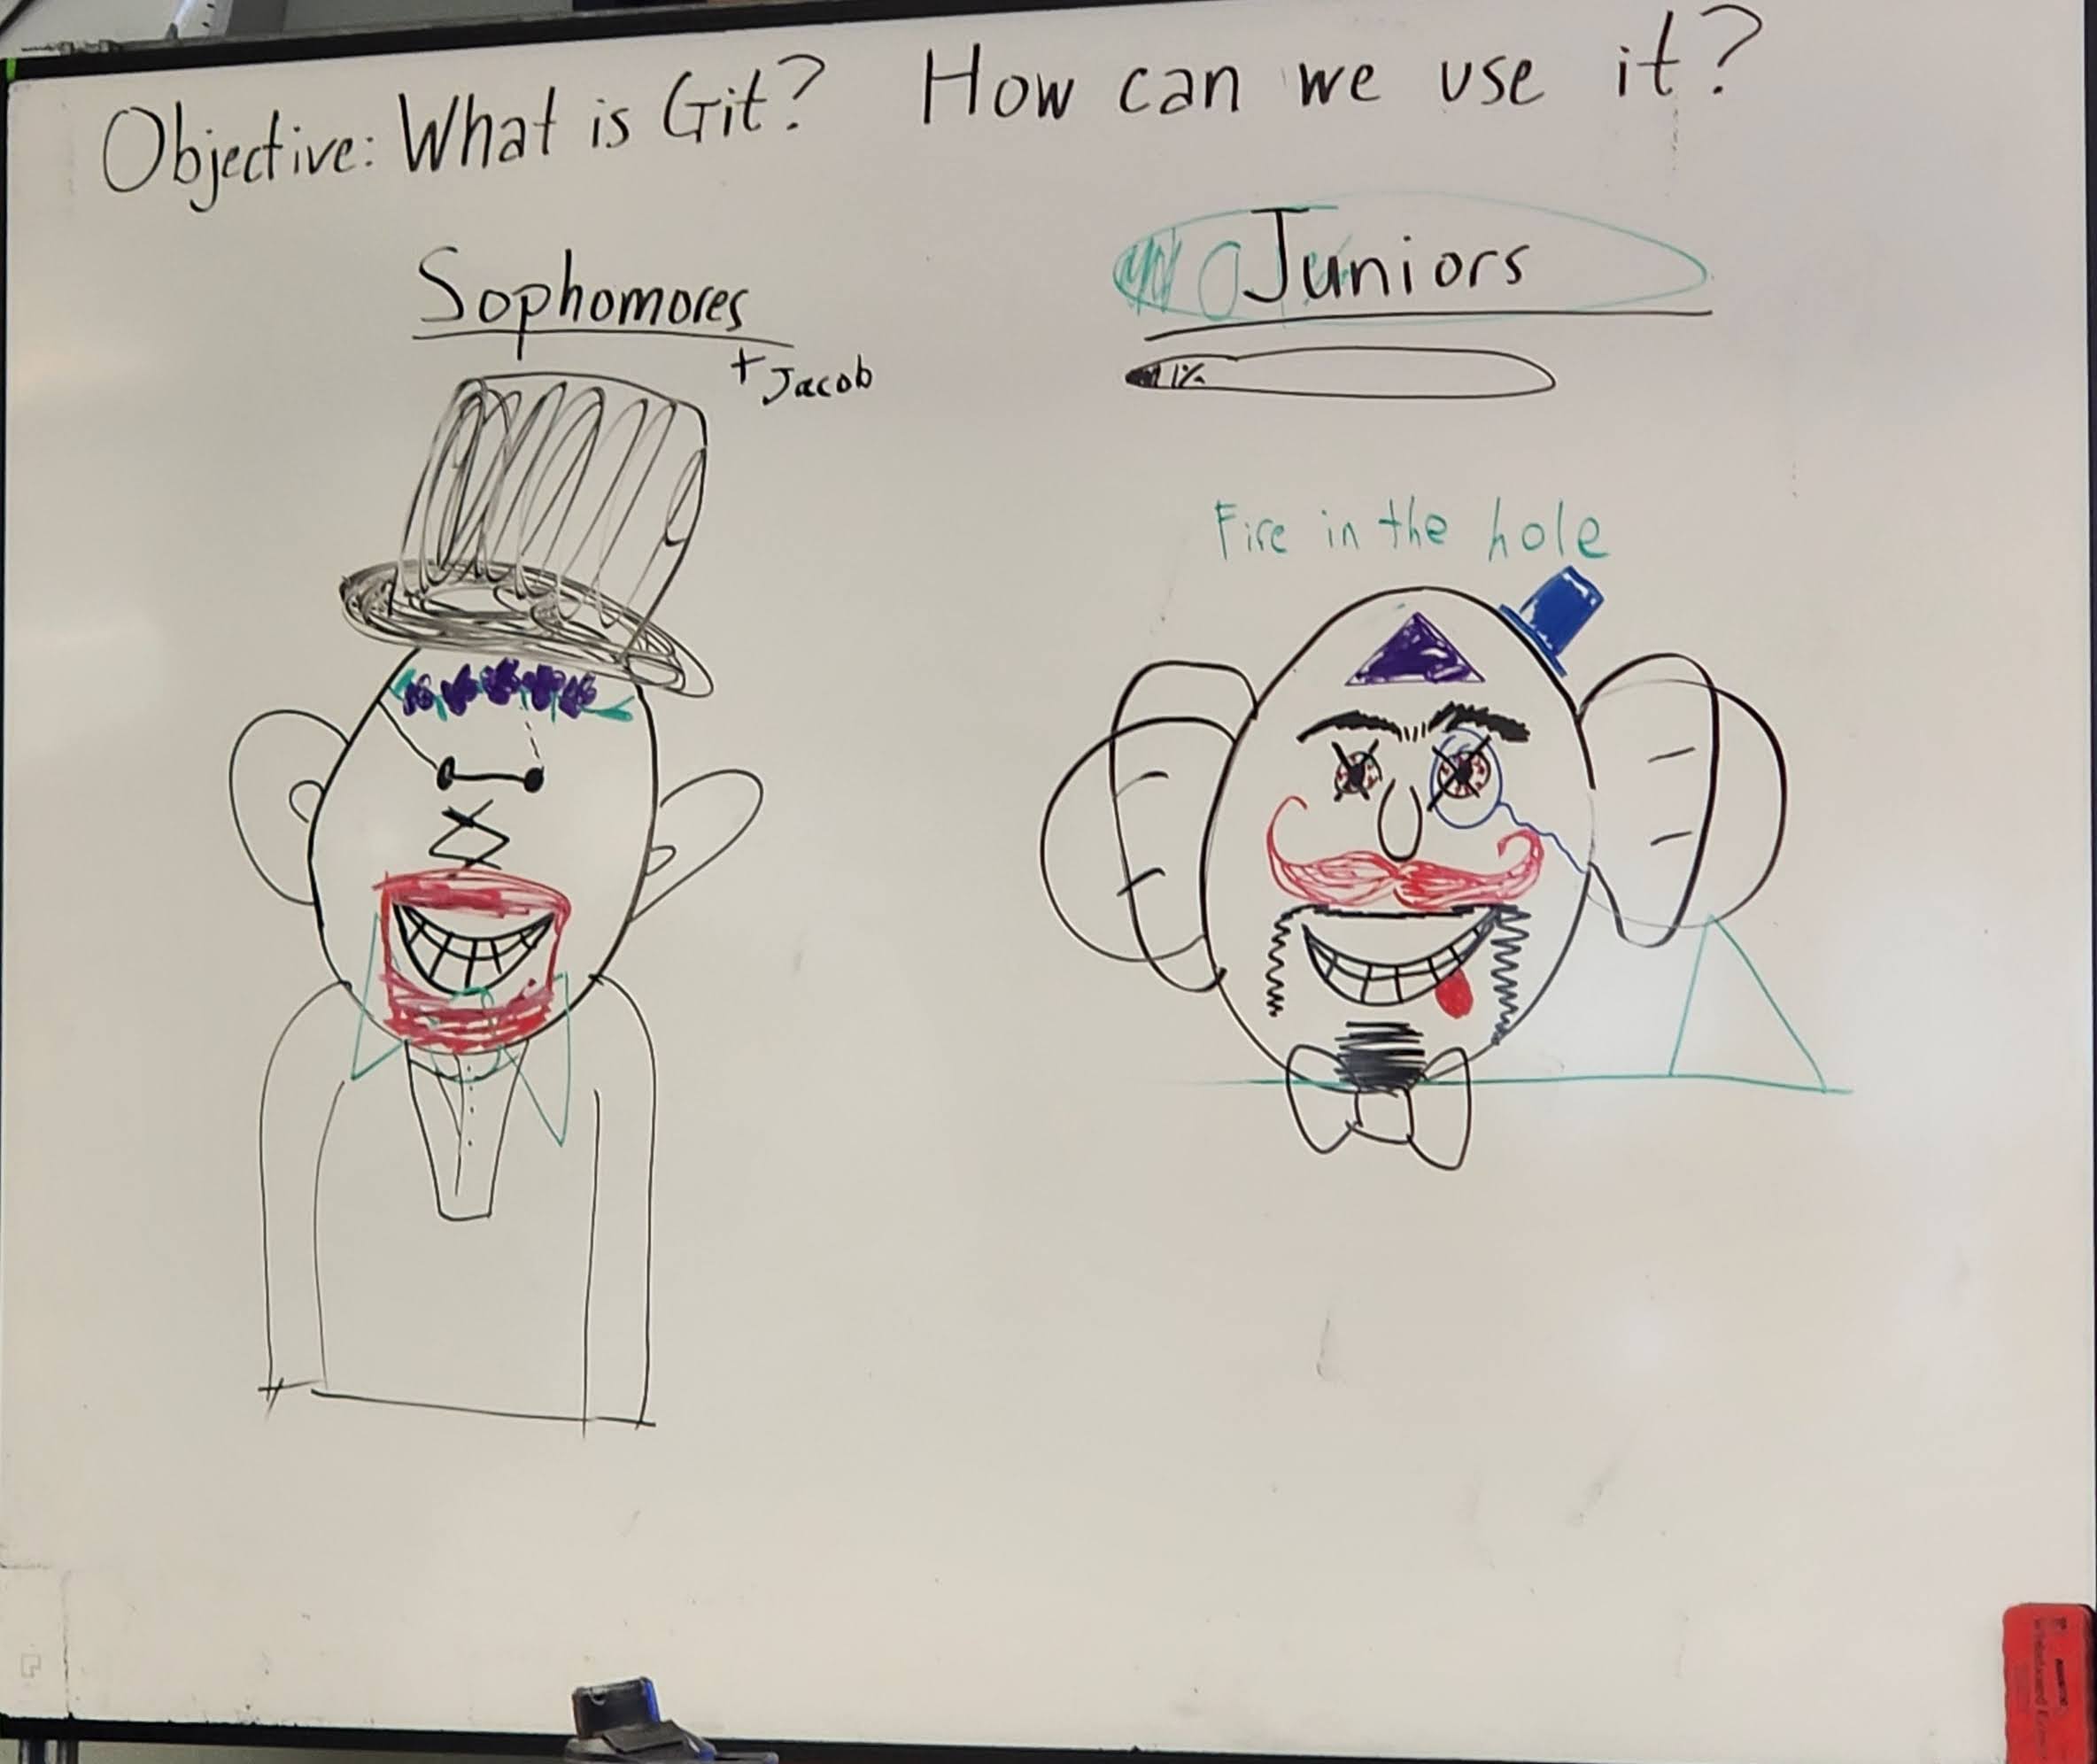 Objective: What is Git? How can we use it?
Sophomores
+ Jacob
Juniors
1%
Fire in the hole